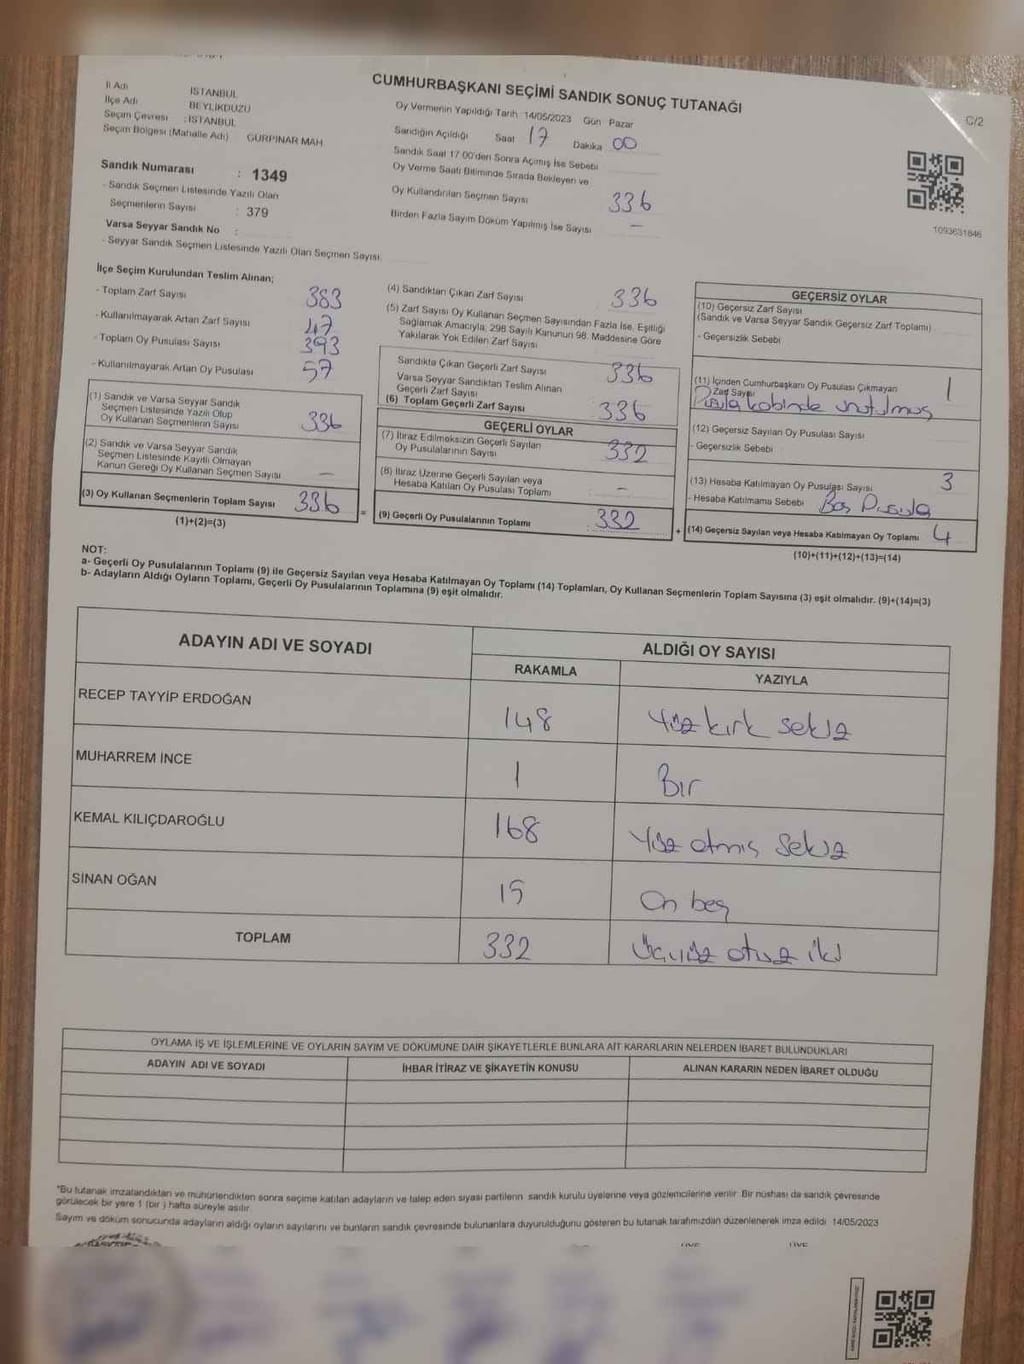 CUMHURBAŞKANI SEÇİMİ SANDIK SONUÇ TUTANAĞI
C/2
İl Adı İSTANBUL
İlçe Adı BEYLİKDÜZÜ
Seçim Çevresi : İSTANBUL
Seçim Bölgesi (Mahalle Adı) GÜRPINAR MAH
Sandık Numarası : 1349
- Sandık Seçmen Listesinde Yazılı Olan
Seçmenlerin Sayısı : 379
Varsa Seyyar Sandık No :
- Seyyar Sandık Seçmen Listesinde Yazılı Olan Seçmen Sayısı:
Oy Vermenin Yapıldığı Tarih 14/05/2023 Gün Pazar
Sandığın Açıldığı Saat 17 Dakika 00
Sandık Saat 17 00'den Sonra Açımış İse Sebebi
Oy Verme Saati Bitiminde Sırada Bekleyen ve
Oy Kullandırılan Seçmen Sayısı 336
Birden Fazla Sayım Döküm Yapılmış İse Sayısı -
1093631846
İlçe Seçim Kurulundan Teslim Alınan;
- Toplam Zarf Sayısı 383
- Kullanılmayarak Artan Zarf Sayısı 47
- Toplam Oy Pusulası Sayısı 393
- Kullanılmayarak Artan Oy Pusulası 57
(1) Sandık ve Varsa Seyyar Sandık
Seçmen Listesinde Yazılı Olup
Oy Kullanan Seçmenlerin Sayısı 336
(2) Sandık ve Varsa Seyyar Sandık
Seçmen Listesinde Kayıtlı Olmayan
Kanun Gereği Oy Kullanan Seçmen Sayısı -
(3) Oy Kullanan Seçmenlerin Toplam Sayısı 336
(1)+(2)=(3)
=
(4) Sandıktan Çıkan Zarf Sayısı 336
(5) Zarf Sayısı Oy Kullanan Seçmen Sayısından Fazla İse, Eşitliği
Sağlamak Amacıyla; 298 Sayılı Kanunun 98. Maddesine Göre
Yakılarak Yok Edilen Zarf Sayısı
Sandıkta Çıkan Geçerli Zarf Sayısı 336
Varsa Seyyar Sandıktan Teslim Alınan
Geçerli Zarf Sayısı
(6) Toplam Geçerli Zarf Sayısı 336
GEÇERLİ OYLAR
(7) İtiraz Edilmeksizin Geçerli Sayılan
Oy Pusulalarının Sayısı 332
(8) İtiraz Üzerine Geçerli Sayılan veya
Hesaba Katılan Oy Pusulası Toplamı -
(9) Geçerli Oy Pusulalarının Toplamı 332
+
GEÇERSİZ OYLAR
(10) Geçersiz Zarf Sayısı
(Sandık ve Varsa Seyyar Sandık Geçersiz Zarf Toplamı)
- Geçersizlik Sebebi
(11) İçinden Cumhurbaşkanı Oy Pusulası Çıkmayan
Zarf Sayısı 1
Pusula kabinde unutulmuş
(12) Geçersiz Sayılan Oy Pusulası Sayısı
- Geçersizlik Sebebi
(13) Hesaba Katılmayan Oy Pusulası Sayısı 3
- Hesaba Katılmama Sebebi Boş Pusula
(14) Geçersiz Sayılan veya Hesaba Katılmayan Oy Toplamı 4
(10)+(11)+(12)+(13)=(14)
NOT:
a- Geçerli Oy Pusulalarının Toplamı (9) ile Geçersiz Sayılan veya Hesaba Katılmayan Oy Toplamı (14) Toplamları, Oy Kullanan Seçmenlerin Toplam Sayısına (3) eşit olmalıdır. (9)+(14)=(3)
b- Adayların Aldığı Oyların Toplamı, Geçerli Oy Pusulalarının Toplamına (9) eşit olmalıdır.
ADAYIN ADI VE SOYADI ALDIĞI OY SAYISI
RAKAMLA YAZIYLA
RECEP TAYYİP ERDOĞAN 148 Yüz kırk sekiz
MUHARREM İNCE 1 Bir
KEMAL KILIÇDAROĞLU 168 Yüz atmış sekiz
SİNAN OĞAN 15 On beş
TOPLAM 332 Üçyüz otuz iki
OYLAMA İŞ VE İŞLEMLERİNE VE OYLARIN SAYIM VE DÖKÜMÜNE DAİR ŞİKAYETLERLE BUNLARA AİT KARARLARIN NELERDEN İBARET BULUNDUKLARI
ADAYIN ADI VE SOYADI İHBAR İTİRAZ VE ŞİKAYETİN KONUSU ALINAN KARARIN NEDEN İBARET OLDUĞU
*Bu tutanak imzalandıktan ve mühürlendikten sonra seçime katılan adayların ve talep eden siyasi partilerin sandık kurulu üyelerine veya gözlemcilerine verilir. Bir nüshası da sandık çevresinde
görülecek bir yere 1 (bir) hafta süreyle asılır.
Sayım ve döküm sonucunda adayların aldığı oyların sayılarını ve bunların sandık çevresinde bulunanlara duyurulduğunu gösteren bu tutanak tarafımızdan düzenlenerek imza edildi 14/05/2023
ÜYE ÜYE